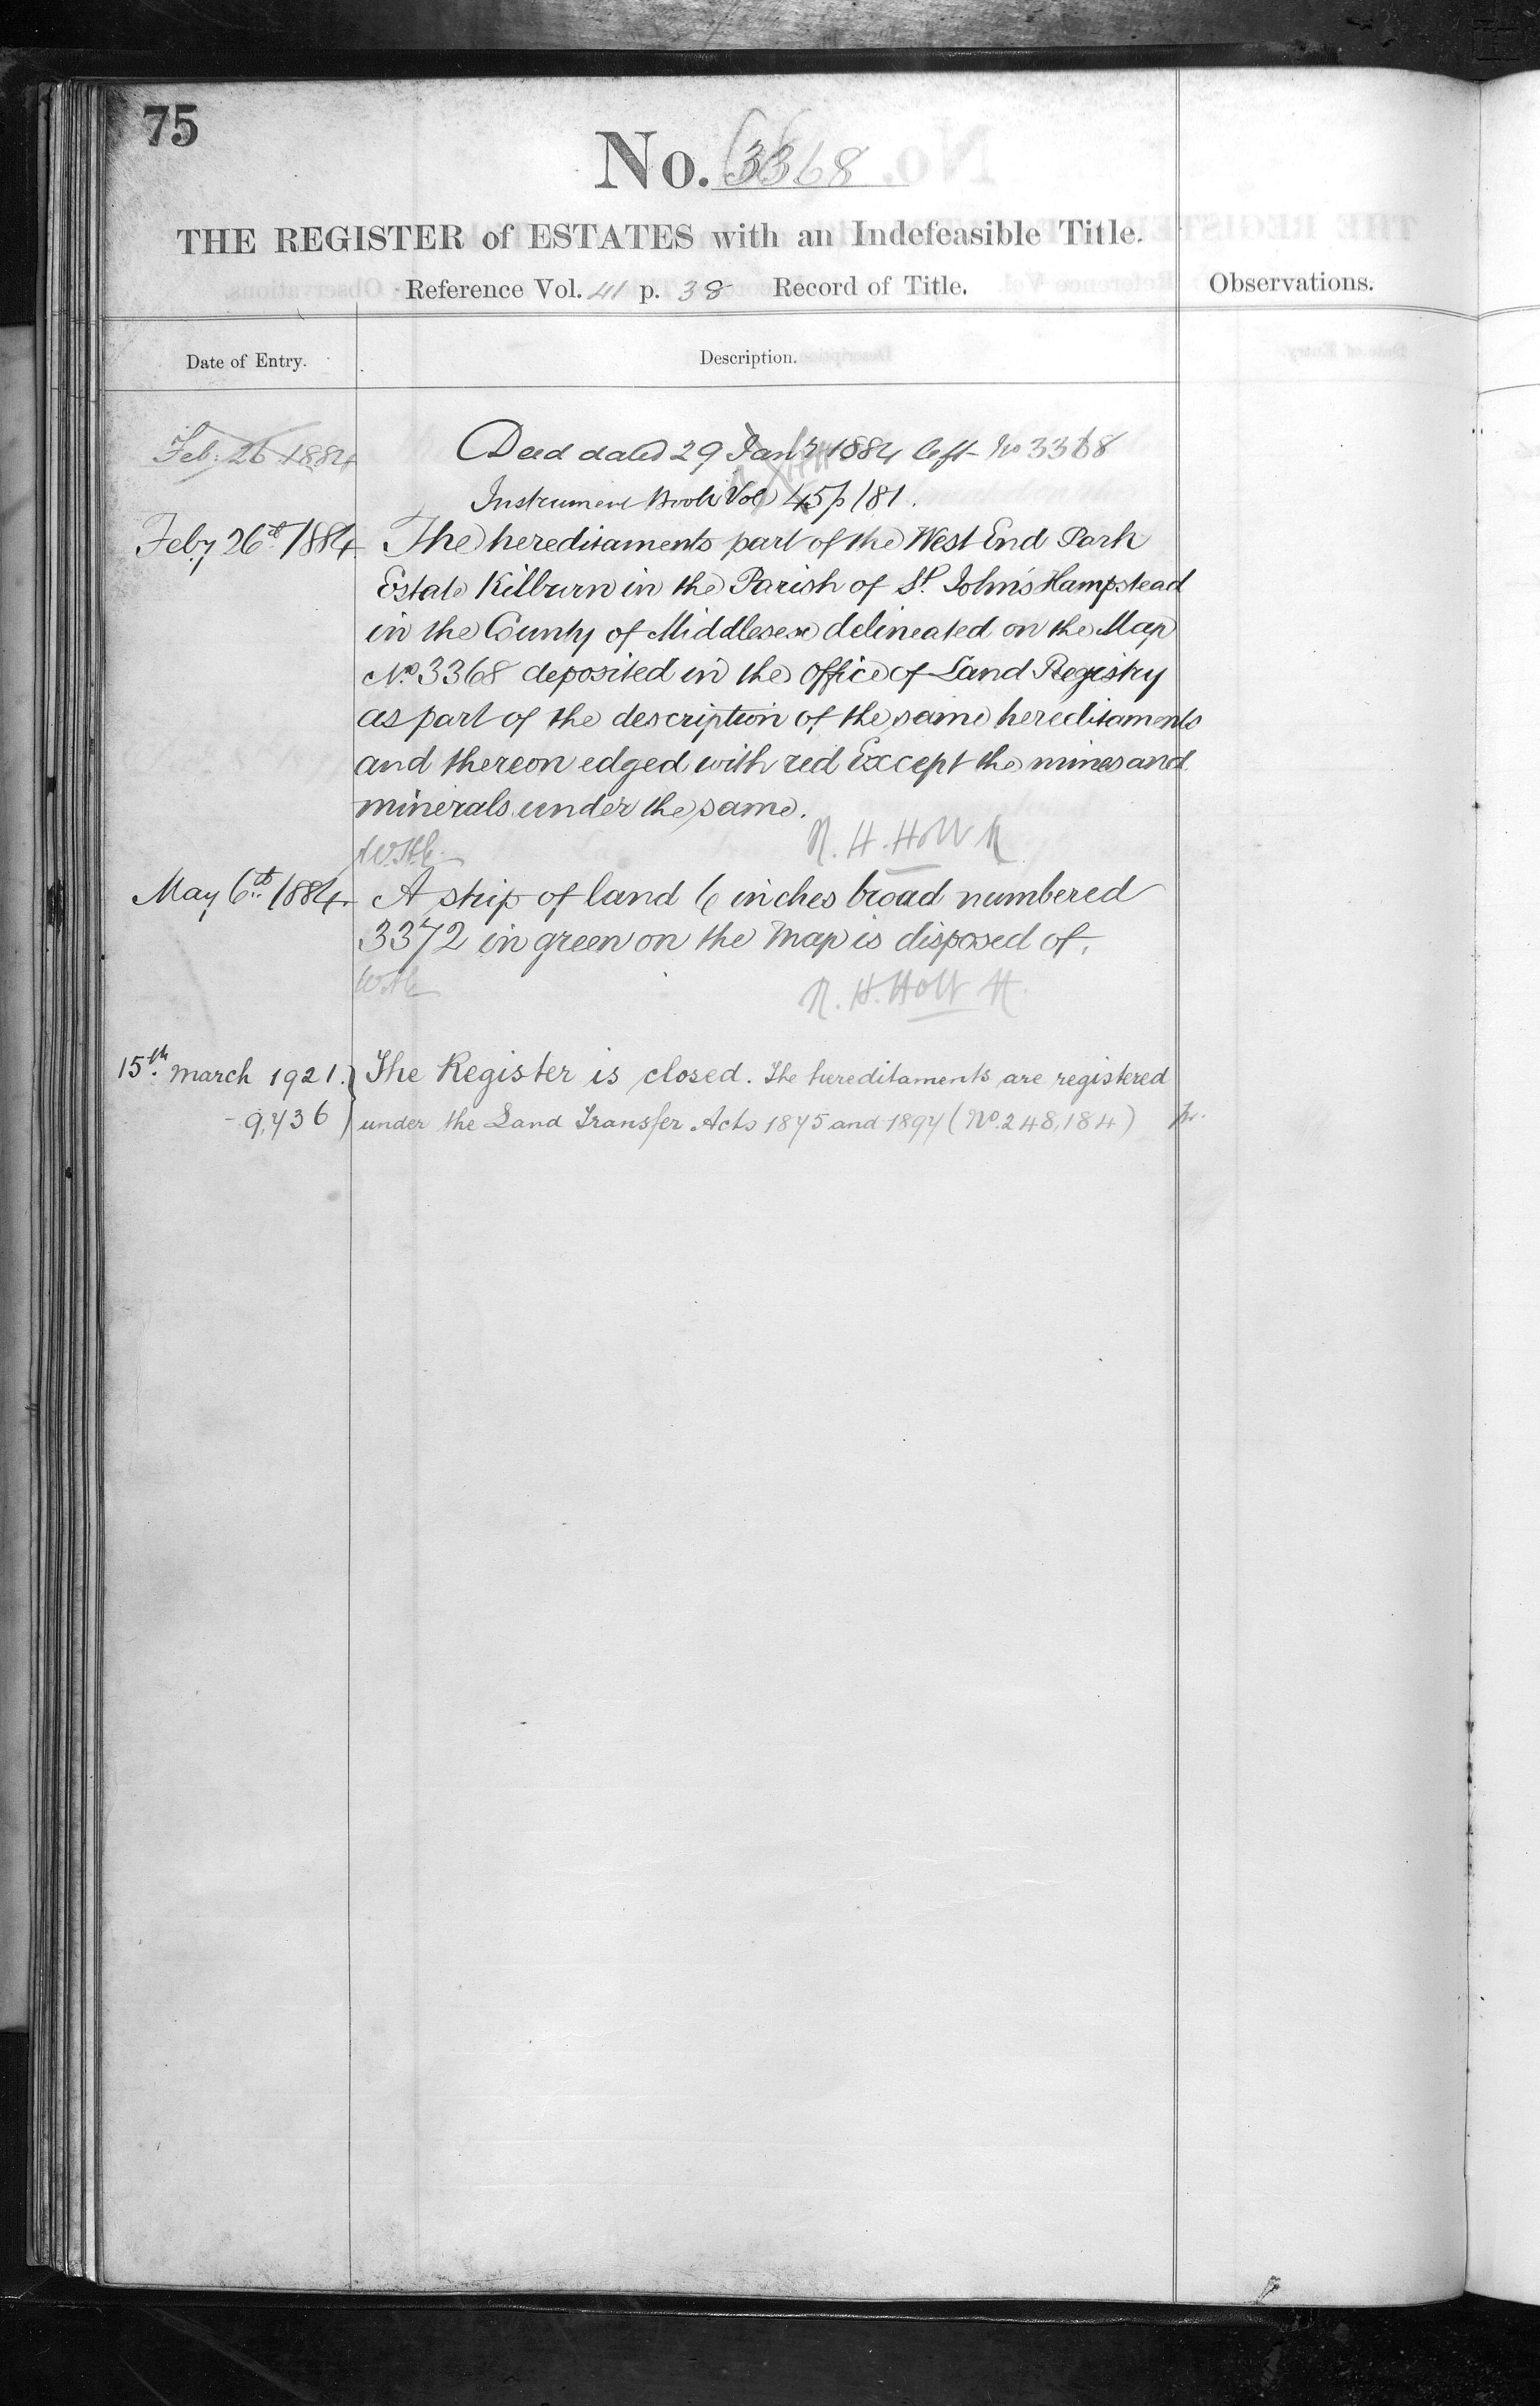 75
No. 3368
THE REGISTER of ESTATES with an Indefeasible Title.
Reference Vol. 41 p. 38 Record of Title.
Observations.
Date of Entry.
Description.
Feb: 26 1884
Deed dated 29 Jany 1884 left No 3368
Instrument Book Vol 45 p 181.
Feby 26th 1884
The hereditaments part of the West End Park
Estate Kilburn in the Parish of St. John's Hampstead
in the County of Middlesex delineated on the Map
No. 3368 deposited in the Office of Land Registry
as part of the description of the same hereditaments
and thereon edged with red Except the mines and
minerals under the same.
R. H. Holt
May 6th 1884.
A strip of land 6 inches broad numbered
3372 in green on the Map is disposed of.
R. H. Holt
15th March 1921. The Register is closed. The hereditaments are registered
9,736 under the Land Transfer Acts 1875 and 1897 (No. 248,184)